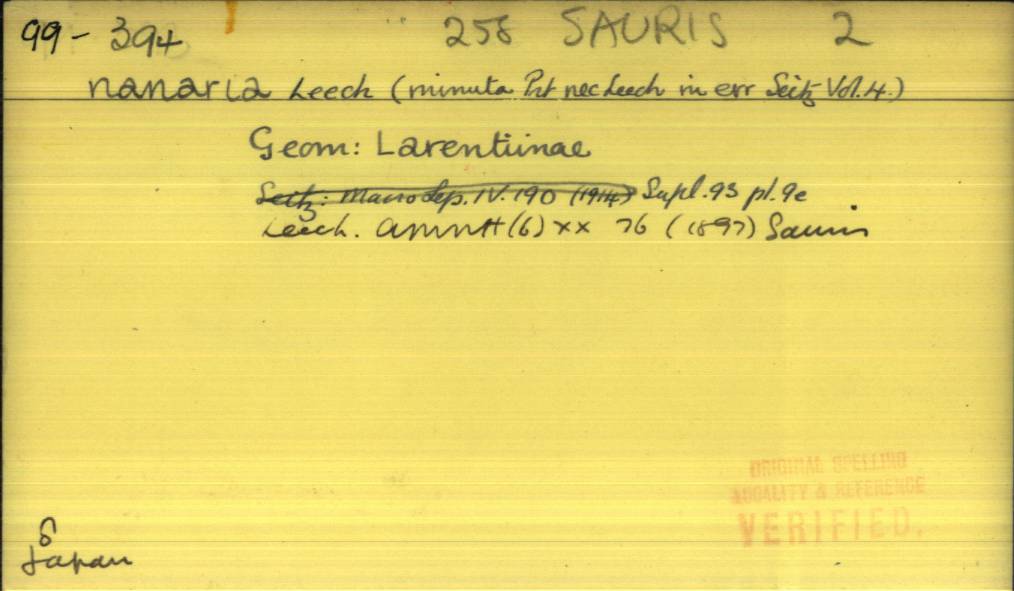 99-394 258 SAURIS 2
nanaria Leech (minuta Prt nec Leech in err Seitz Vol.4.)
Geom: Larentiinae
Seitz: Macrolep. IV. 190 (1914) Supl. 93 pl. 9e
Leech. AMNH (6) xx 76 (1897) Sauris
ORIGINAL SPELLING
LOCALITY & REFERENCE
VERIFIED.
8
Japan